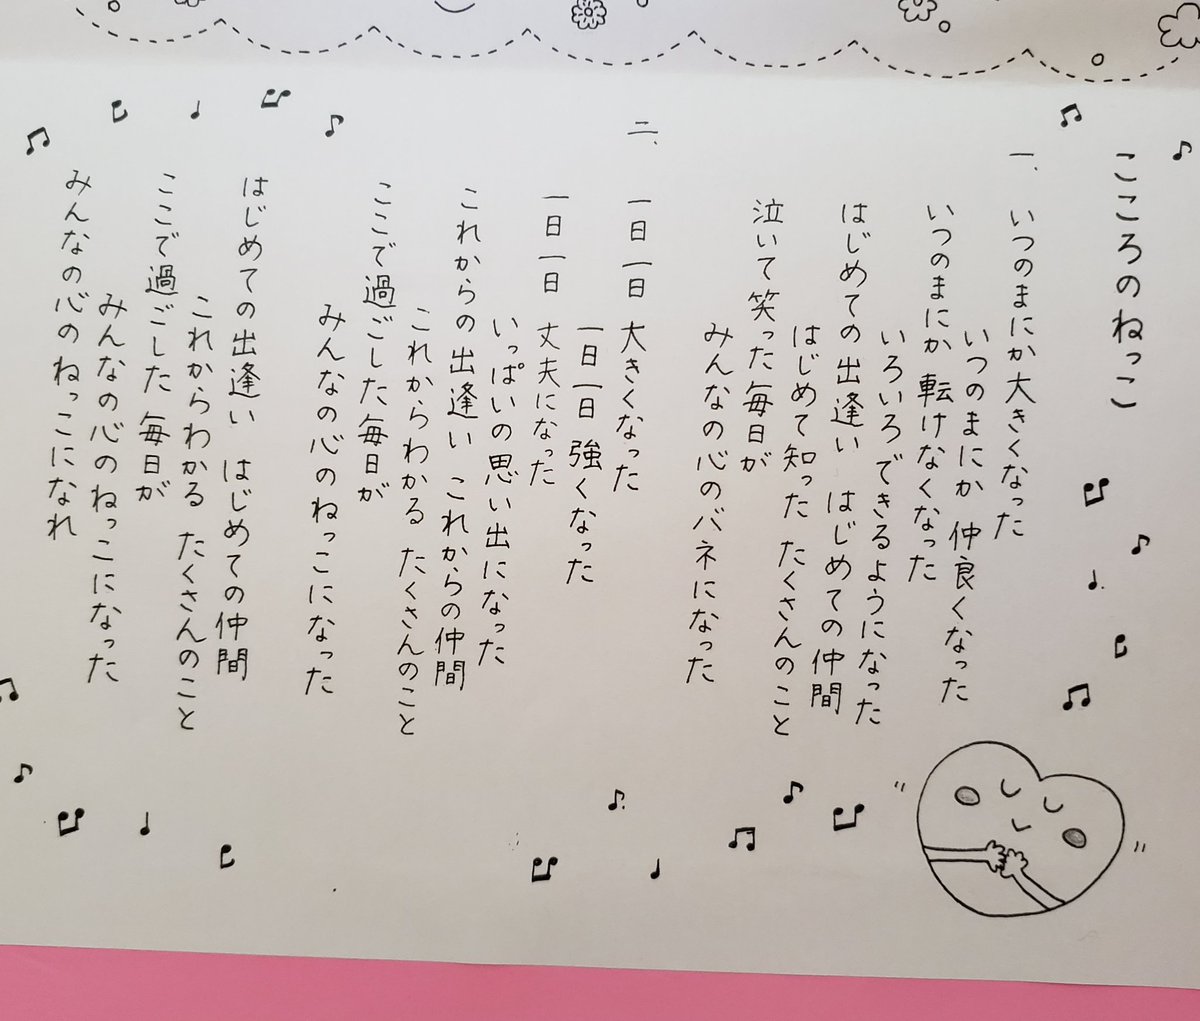 こころのねっこ
一、いつのまにか大きくなった
いつのまにか 仲良くなった
いつのまにか 転けなくなった
いろいろできるようになった
はじめての出逢い はじめての仲間
はじめて知った たくさんのこと
泣いて笑った毎日が
みんなの心のバネになった
二、一日一日 大きくなった
一日一日 強くなった
一日一日 丈夫になった
いっぱいの思い出になった
これからの出逢い これからの仲間
これからわかる たくさんのこと
ここで過ごした毎日が
みんなの心のねっこになった
はじめての出逢い はじめての仲間
これからわかる たくさんのこと
ここで過ごした 毎日が
みんなの心のねっこになった
みんなの心のねっこになれ